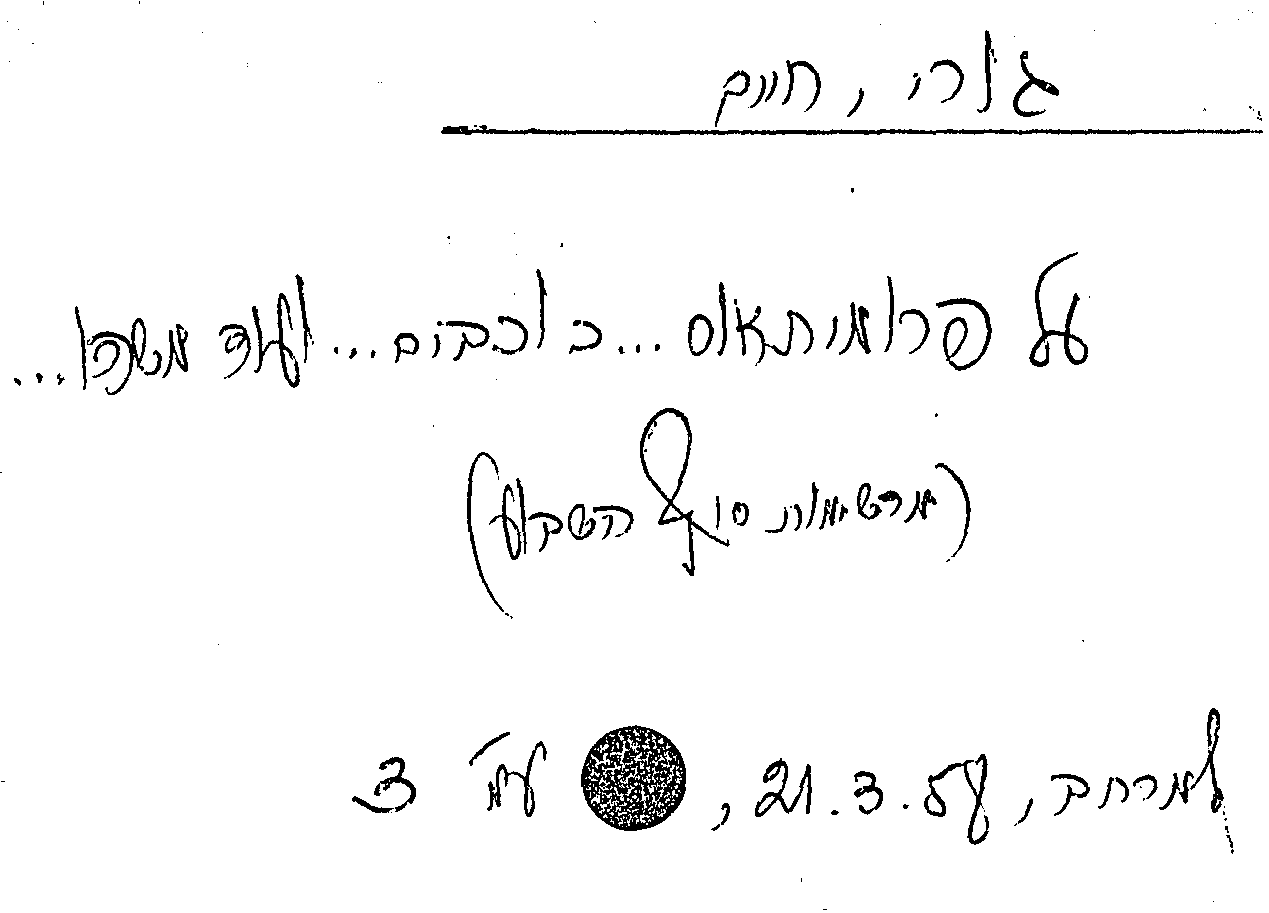 גורי, חיים
על פרומיתאוס... כוכבים... ועוד משהו...
(מרשימות סוף השבוע)
למרחב, 21.3.58, עמ' 3